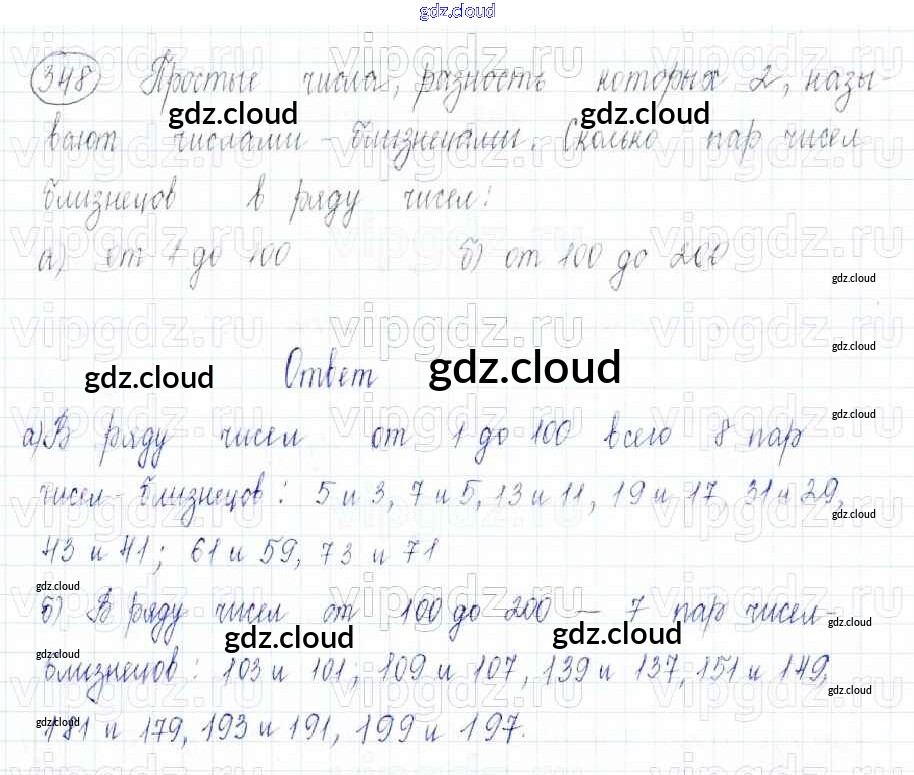 gdz.cloud
348 Простые числа, разность которых 2, назы-
вают числами - близнецами. Сколько пар чисел
близнецов в ряду чисел:
а) от 1 до 100 б) от 100 до 200
Ответ
а) В ряду чисел от 1 до 100 всего 8 пар
чисел - близнецов: 5 и 3, 7 и 5, 13 и 11, 19 и 17, 31 и 29,
43 и 41; 61 и 59, 73 и 71
б) В ряду чисел от 100 до 200 — 7 пар чисел-
близнецов: 103 и 101; 109 и 107, 139 и 137, 151 и 149,
181 и 179, 193 и 191, 199 и 197.